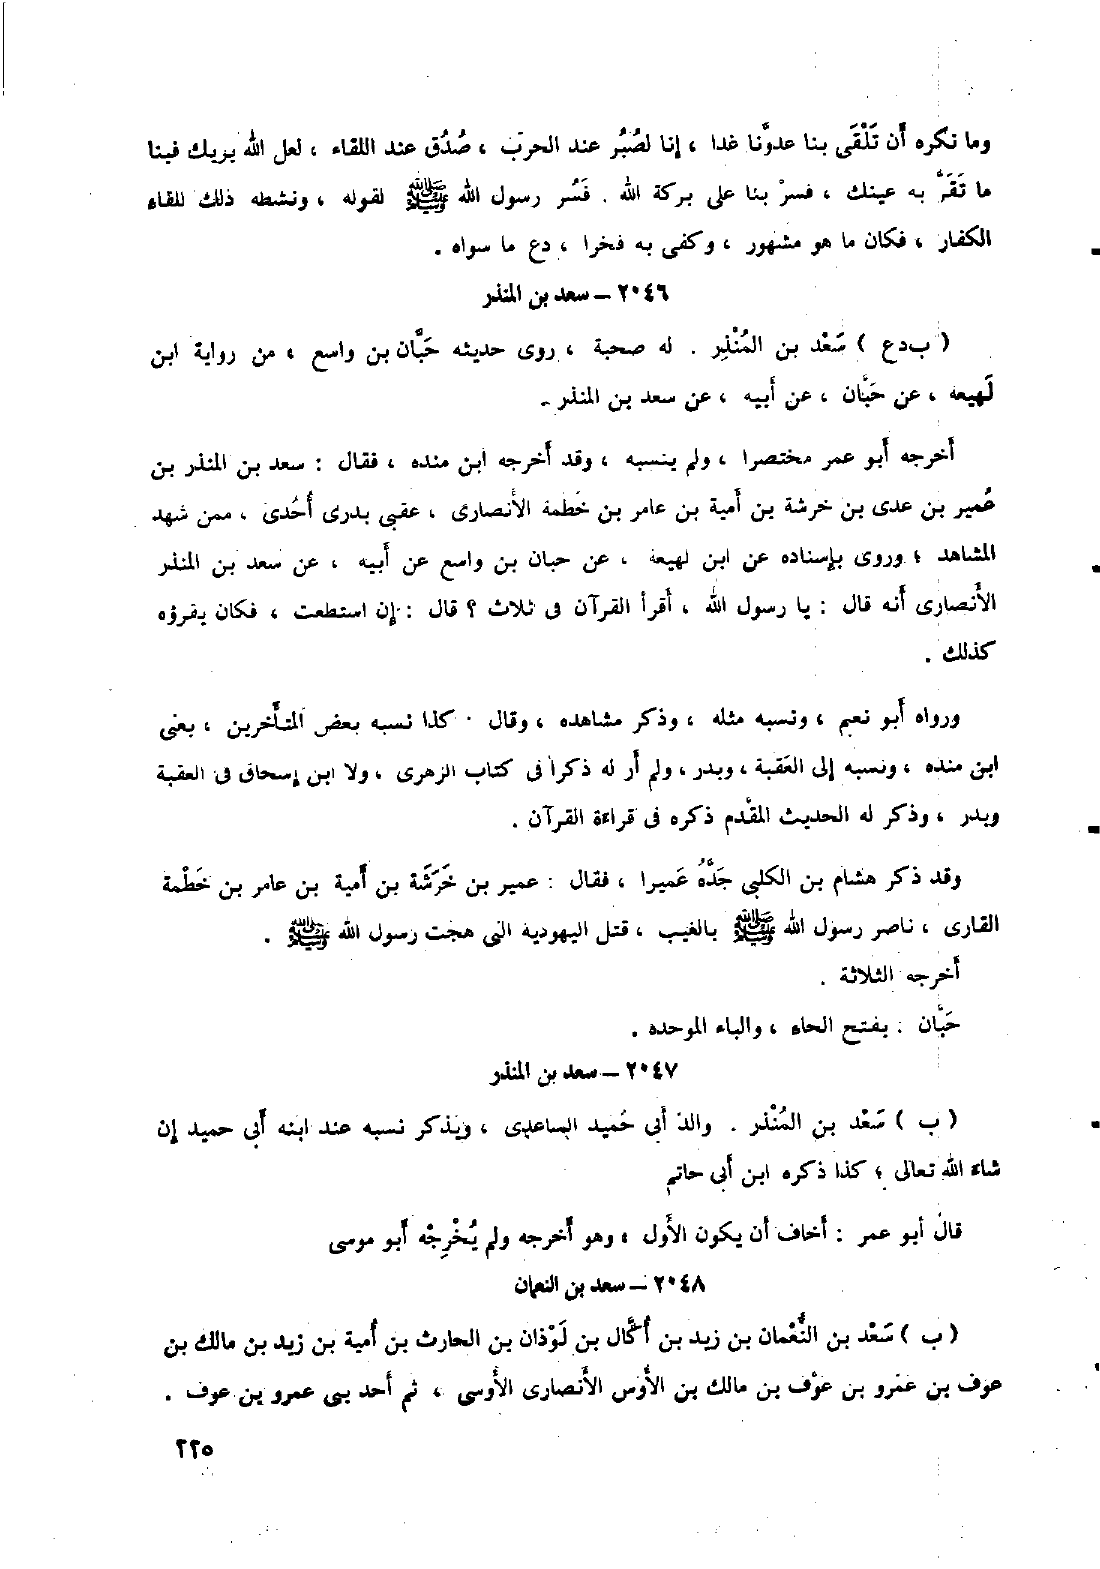 وما نكره أن تَلْقَى بنا عدوَّنا غدا ، إنا لصُبُر عند الحرب ، صُدُق عند اللقاء ، لعل الله يريك فينا
ما تَقَرَّ به عينك ، فسرْ بنا على بركة الله . فَسُر رسول الله ﷺ لقوله ، ونشطه ذلك للقاء
الكفار ، فكان ما هو مشهور ، وكفى به فخرا ، دع ما سواه .
٢٠٤٦ – سعد بن المنذر
( ب د ع ) سَعْد بن المُنْذِر . له صحبة ، روى حديثه حَبَّان بن واسع ، من رواية ابن
لَهيعه ، عن حَبَّان ، عن أبيه ، عن سعد بن المنذر .
أخرجه أبو عمر مختصرا ، ولم ينسبه ، وقد أخرجه ابن منده ، فقال : سعد بن المنذر بن
عُمير بن عدى بن خرشة بن أمية بن عامر بن خَطمة الأنصارى ، عقبي بدرى أُحُدى ، ممن شهد
المشاهد ؛ وروى بإسناده عن ابن لهيعة ، عن حبان بن واسع عن أبيه ، عن سعد بن المنذر
الأنصارى أنه قال : يا رسول الله ، أقرأ القرآن فى ثلاث ؟ قال : إن استطعت ، فكان يقرؤه
كذلك .
ورواه أبو نعيم ، ونسبه مثله ، وذكر مشاهده ، وقال . كذا نسبه بعض المتأخرين ، يعنى
ابن منده ، ونسبه إلى العَقبة ، وبدر ، ولم أر له ذكرا فى كتاب الزهرى ، ولا ابن إسحاق فى العقبة
وبدر ، وذكر له الحديث المقدم ذكره فى قراءة القرآن .
وقد ذكر هشام بن الكلبي جَدَّهُ عَميرا ، فقال : عمير بن خَرَشَة بن أمية بن عامر بن خَطْمة
القارى ، ناصر رسول الله ﷺ بالغيب ، قتل اليهودية التى هجت رسول الله ﷺ .
أخرجه الثلاثة .
حَبَّان : بفتح الحاء ، والباء الموحده .
٢٠٤٧ – سعد بن المنذر
( ب ) سَعْد بن المُنْذر . والد أبى حُميد الساعدى ، ويذكر نسبه عند ابنه أبى حميد إن
شاء الله تعالى ؛ كذا ذكره ابن أبى حاتم
قال أبو عمر : أخاف أن يكون الأول ، وهو أخرجه ولم يُخْرِجْه أبو موسى
٢٠٤٨ – سعد بن النعمان
( ب ) سَعْد بن النُّعْمان بن زيد بن أُكَّال بن لَوْذان بن الحارث بن أمية بن زيد بن مالك بن
عوف بن عَمْرو بن عَوْف بن مالك بن الأوس الأنصارى الأوسى ، ثم أحد بنى عمرو بن عوف .
٢٢٥